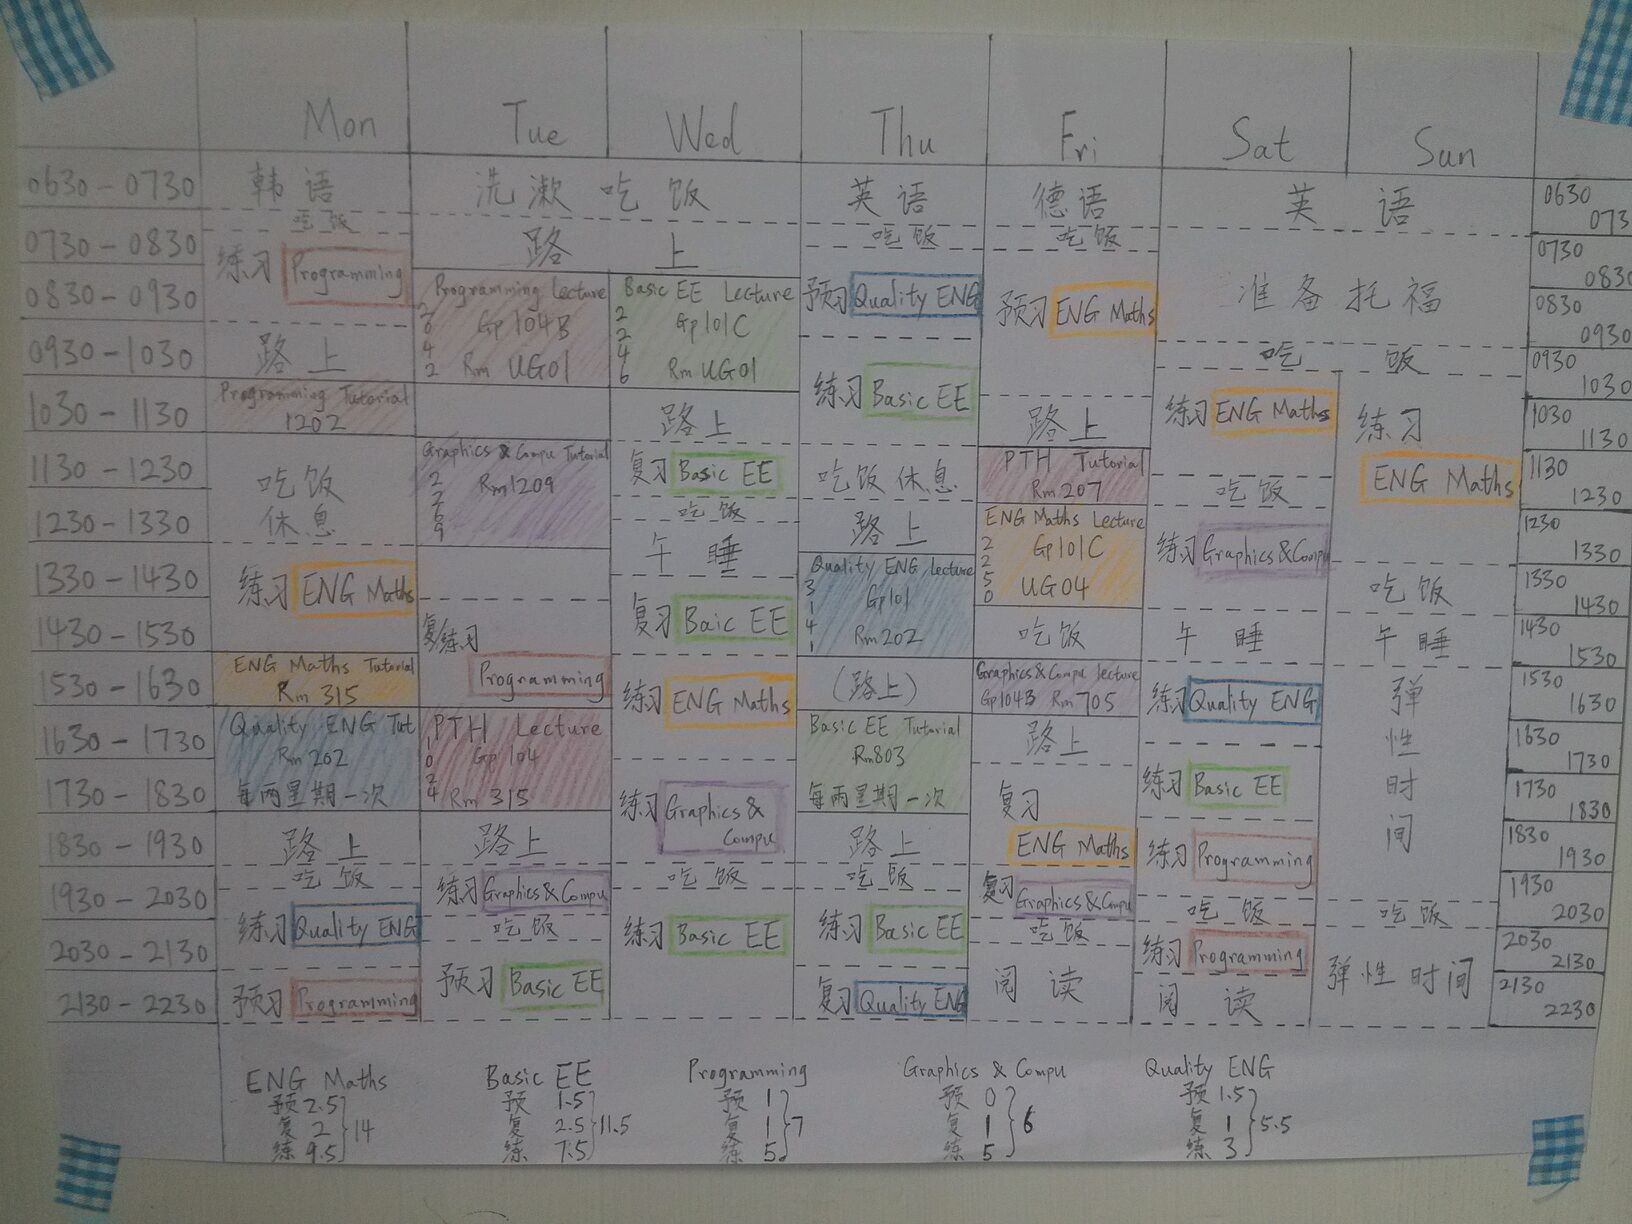 Mon Tue Wed Thu Fri Sat Sun
0630-0730 韩语 洗漱 吃饭 英语 德语 英语 0630
073
吃饭
0730-0830 练习 Programming 路上 吃饭 吃饭 0730
0830
0830-0930 Programming Lecture Basic EE Lecture 预习 Quality ENG 预习 ENG Maths 准备托福 0830
Gp104B Gp101C 0930
0930-1030 路上 Rm UG01 Rm UG01 吃饭 0930
22462 2246
1030
1030-1130 Programming Tutorial 练习 Basic EE 练习 ENG Maths 练习 1030
1202 路上 路上 1130
1130-1230 吃饭 Graphics & Compu Tutorial 复习 Basic EE 吃饭休息 PTH Tutorial 吃饭 ENG Maths 1130
Rm1209 Rm 207 1230
1230-1330 休息 吃饭 路上 ENG Maths Lecture 1230
午睡 Gp101C 练习 Graphics & Compu 1330
1330-1430 练习 ENG Maths Quality ENG lecture UG04 吃饭 1330
2250
Gp101 1430
3141
1430-1530 复练习 复习 Baic EE Rm202 吃饭 午睡 午睡 1430
1530
1530-1630 ENG Maths Tutorial Programming 练习 ENG Maths (路上) Graphics & Compu lecture 练习 Quality ENG 弹性时间 1530
Rm 315 Gp104B Rm 705 1630
1630-1730 Quality ENG Tut PTH Lecture Basic EE Tutorial 路上 1630
Rm 202 Gp 104 Rm803 1730
1024
1730-1830 每两星期一次 Rm 315 练习 Graphics & Compu 每两星期一次 复习 练习 Basic EE 1730
1830
1830-1930 路上 路上 路上 ENG Maths 练习 Programming 1830
吃饭 吃饭 吃饭 1930
1930-2030 练习 Graphics & Compu 复习 Graphics & Compu 吃饭 吃饭 1930
练习 Quality ENG 吃饭 吃饭 2030
2030-2130 练习 Basic EE 练习 Basic EE 练习 Programming 2030
预习 Basic EE 阅读 弹性时间 2130
2130-2230 预习 Programming 复习 Quality ENG 阅读 2130
2230
ENG Maths Basic EE Programming Graphics & Compu Quality ENG
预 2.5 预 1.5 预 1 预 0 预 1.5
复 2 14 复 2.5 11.5 复 1 7 复 1 6 复 1 5.5
练 9.5 练 7.5 练 5 练 5 练 3